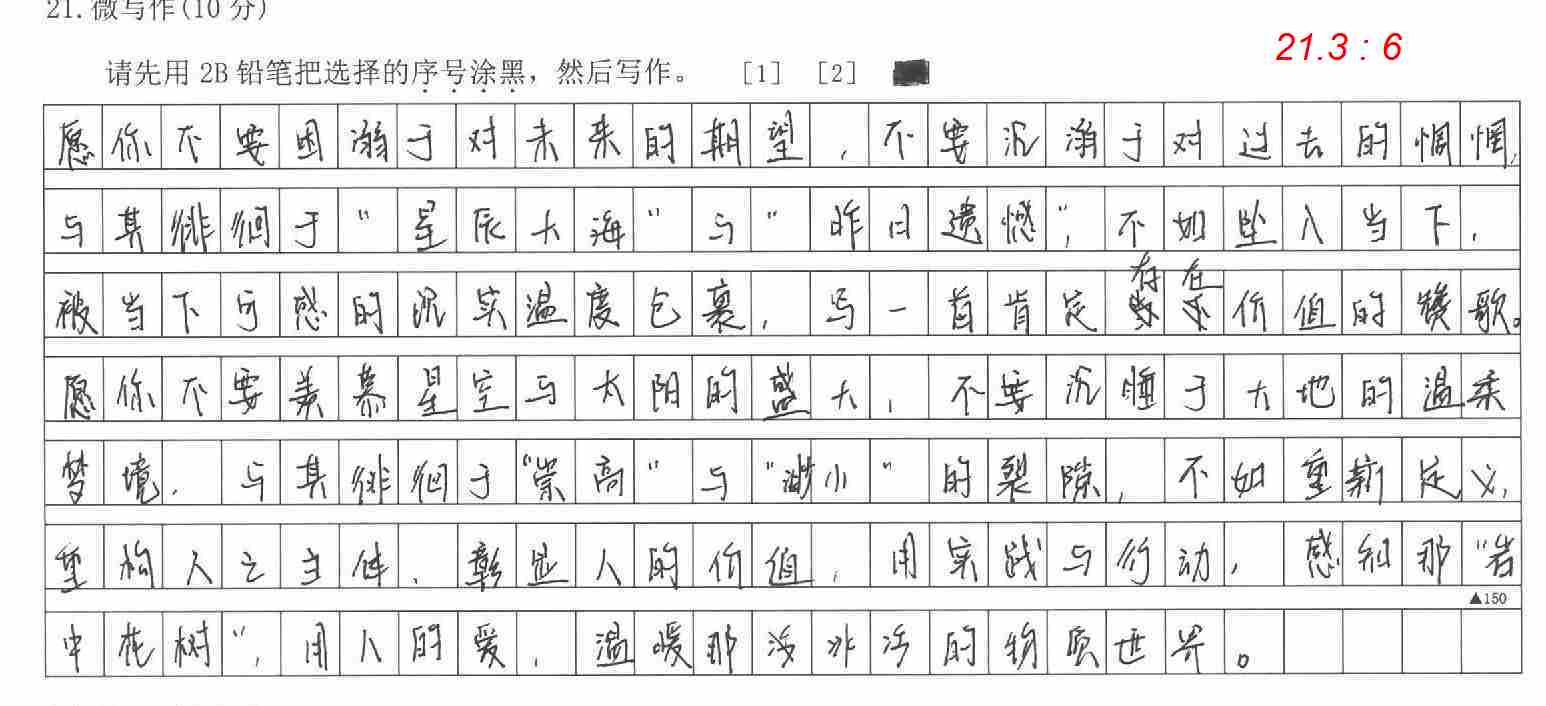 21.微写作(10分)
21.3 : 6
请先用2B铅笔把选择的序号涂黑，然后写作。 [1] [2]
愿你不要困溺于对未来的期望，不要沉溺于对过去的惆惘，
与其徘徊于“星辰大海”与“昨日遗憾”，不如坠入当下，
被当下可感的沉实温度包裹，写一首肯定存在价值的赞歌。
愿你不要羡慕星空与太阳的盛大，不要沉睡于大地的温柔
梦境，与其徘徊于“崇高”与“渺小”的裂隙，不如重新定义，
重构人之主体，彰显人的价值，用实践与行动，感知那“岩
▲150
中花树”，用人的爱，温暖那冷冰冷的物质世界。